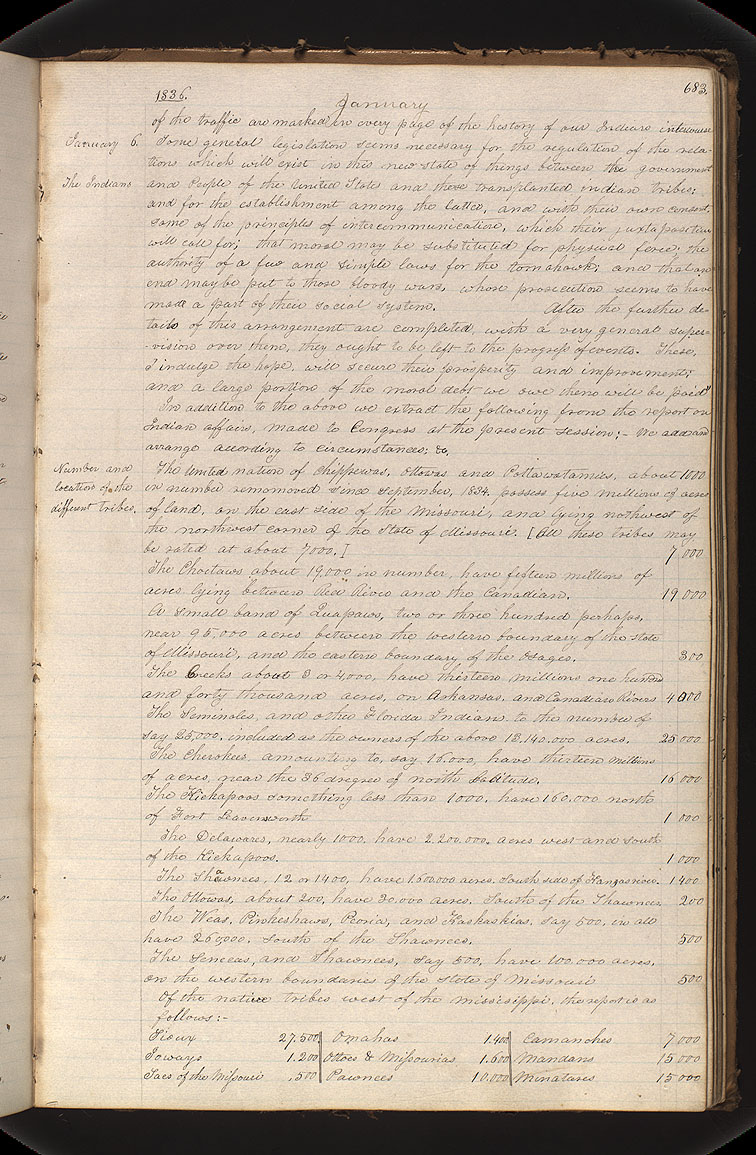 1836.
January
683.
of the traffic are marked in every page of the history of our Indian intercourse
January 6.
Some general legislation seems necessary for the regulation of the rela-
tions which will exist in this new state of things between the government
The Indians
and People of the United States and these transplanted indian tribes;
and for the establishment among the latter, and with their own consent,
some of the principles of intercommunication, which their juxtaposition
will call for; that moral may be substituted for physical force; the
authority of a few and simple laws for the tomahawk; and that an
end may be put to those bloody wars, whose prosecution seems to have
made a part of their social system. After the further de-
tails of this arrangement are completed, with a very general super-
-vision over them, they ought to be left to the progress of events. These,
I indulge the hope, will secure their prosperity and improvement;
and a large portion of the moral debt we owe them will be paid"
In addition to the above we extract the following from the report on
Indian affairs, made to Congress at the present session; - We add and
arrange according to circumstances; &c.
Number and
location of the
different tribes.
The United nation of Chippewas, Ottowas and Pottawatamies, about 1000
in number remomoved since September, 1834. possess five millions of acres
of land, on the east side of the Missouri, and lying nothwest of
the northwest corner of the State of Missouri. [All these tribes may
be rated at about 7000.] 7 000
The Choctaws about 19,000 in number, have fifteen millions of
acres lying between Red River and the Canadian. 19 000
A small band of Quapaws, two or three hundred perhaps,
near 95,000 acres between the western boundary of the state
of Missouri, and the eastern boundary of the Osages. 300
The Creeks about 3 or 4,000, have thirteen millions one hundred
and forty thousand acres, on Arkansas, and Canadian Rivers 4 000
The Seminoles, and other Florida Indians to the number of
say 25,000, included as the owners of the above 13,140.000 acres. 25 000
The Cherokees, amounting to, say 16.000, have thirteen millions
of acres, near the 36 dregree of north latitude. 16 000
The Kickapoos something less than 1000. have 160.000 north
of Fort Leavenworth 1 000
The Delawares, nearly 1000. have 2.200.000. acres west and south
of the Kickapoos. 1 000
The Shawnees, 12 or 1400, have 1.600.000 acres. South side of Kanzas river. 1 400
The Ottowas, about 200, have 30.000 acres. South of the Shawnees. 200
The Weas, Pinkeshaws, Peoria, and Kaskaskias, say 500, in all
have 260,000. South of the Shawnees. 500
The Senecas, and Shawnees, say 500, have 100.000 acres,
on the western boundaries of the state of Missouri 500
Of the native tribes west of the Missisippi, the report is as
follows:-
Sioux 27.500 Omahas 1.400 Camanches 7 000
Ioways 1.200 Ottoes & Missourias 1.600 Mandans 15 000
Sacs of the Missouri .500 Pawnees 10.000 Minatares 15 000